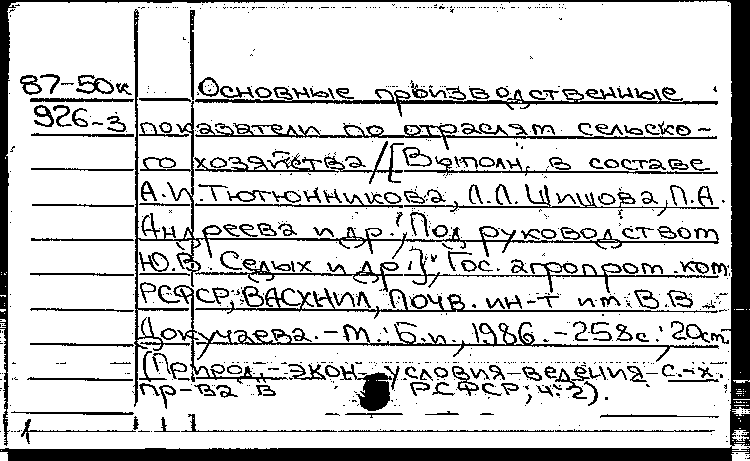 87-50к Основные производственные
926-3 показатели по отраслям сельско-
го хозяйства / [Выполн. в составе
А.И. Тютюнникова, Л.Л. Шишова, П.А.
Андреева и др.; Под руководством
Ю.В. Седых и др.]; Гос. агропром. ком.
РСФСР, ВАСХНИЛ, Почв. ин-т им. В.В.
Докучаева. - М.: Б.и., 1986. - 258с.: 20см.
(Природ.-экон. условия ведения с.-х.
пр-ва в РСФСР; ч. 2).
1